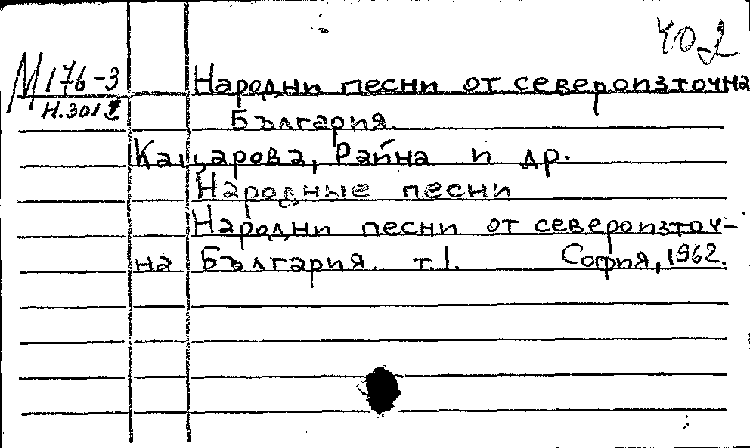 402
М 176-3
Н.301
Народни песни от североизточна
България.
Кацарова, Райна и др.
Народные песни
Народни песни от североизточ-
на България. т.1. София, 1962.